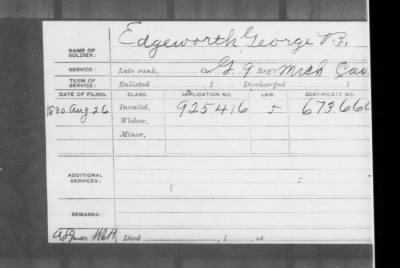 Edgeworth, George B.
NAME OF SOLDIER:
SERVICE: Late rank, Co. G, 9 Reg't Mich Cav
TERM OF SERVICE: Enlisted , 1 Discharged , 1
DATE OF FILING. CLASS. APPLICATION NO. LAW. CERTIFICATE NO.
1890 Aug 26 Invalid, 925416 5
Widow,
Minor,
ADDITIONAL SERVICES:
REMARKS:
Died , 1 , at